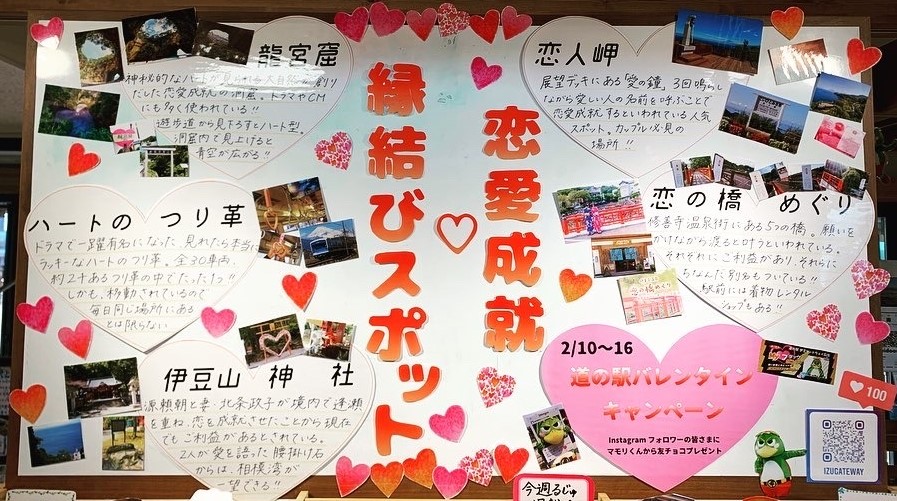 縁結びスポット
恋愛成就
龍宮窟
神秘的なハートが見られる大自然が創り
だした恋愛成就の洞窟。ドラマやCM
にも多く使われている!!
遊歩道から見下ろすとハート型。
洞窟内で見上げると
青空が広がる!!
恋人岬
展望デッキにある「愛の鐘」3回鳴らし
ながら愛しい人の名前を呼ぶことで
恋愛成就するといわれている人気
スポット。カップル必見の
場所!!
ハートの つり革
ドラマで一躍有名になった、見れたら本当に
ラッキーなハートのつり革。全30車両、
約2千あるつり革の中でたった1つ!!
しかも、移動されているので
毎日同じ場所にある
とは限らない
恋の橋 めぐり
修善寺温泉街にある5つの橋。願いを
かけながら渡ると叶うといわれている。
それぞれにご利益があり、それらに
ちなんだ別名もついている!!
駅前には着物レンタル
ショップもある!!
伊豆山 神 社
源頼朝と妻・北条政子が境内で逢瀬
を重ね、恋を成就させたことから現在
でもご利益があるとされている。
2人が愛を語った腰掛け石
からは、相模湾が
一望できる!!
2/10〜16
道の駅バレンタイン
キャンペーン
Instagram フォロワーの皆さまに
マモリくんから友チョコプレゼント
恋の橋めぐり
100
IZUGATEWAY
今週るじゅ